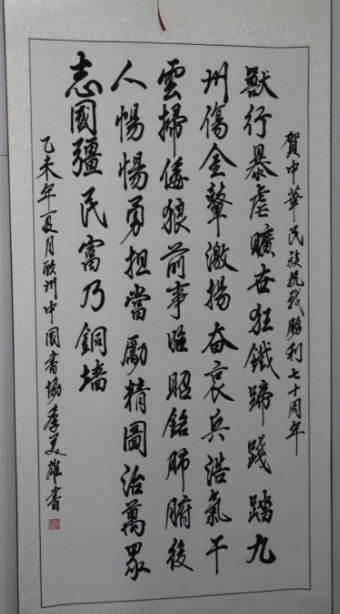 賀中華民族抗戰勝利七十周年
獸行暴虐曠世狂鐵蹄踐踏九
州傷金鼙激揚奋哀兵浩氣干
雲掃倭狼前事昭銘肺腑後
人惕惕勇担當勵精圖治萬眾
志國疆民富乃銅墙
乙未年夏月欧洲中国書協李美雄書